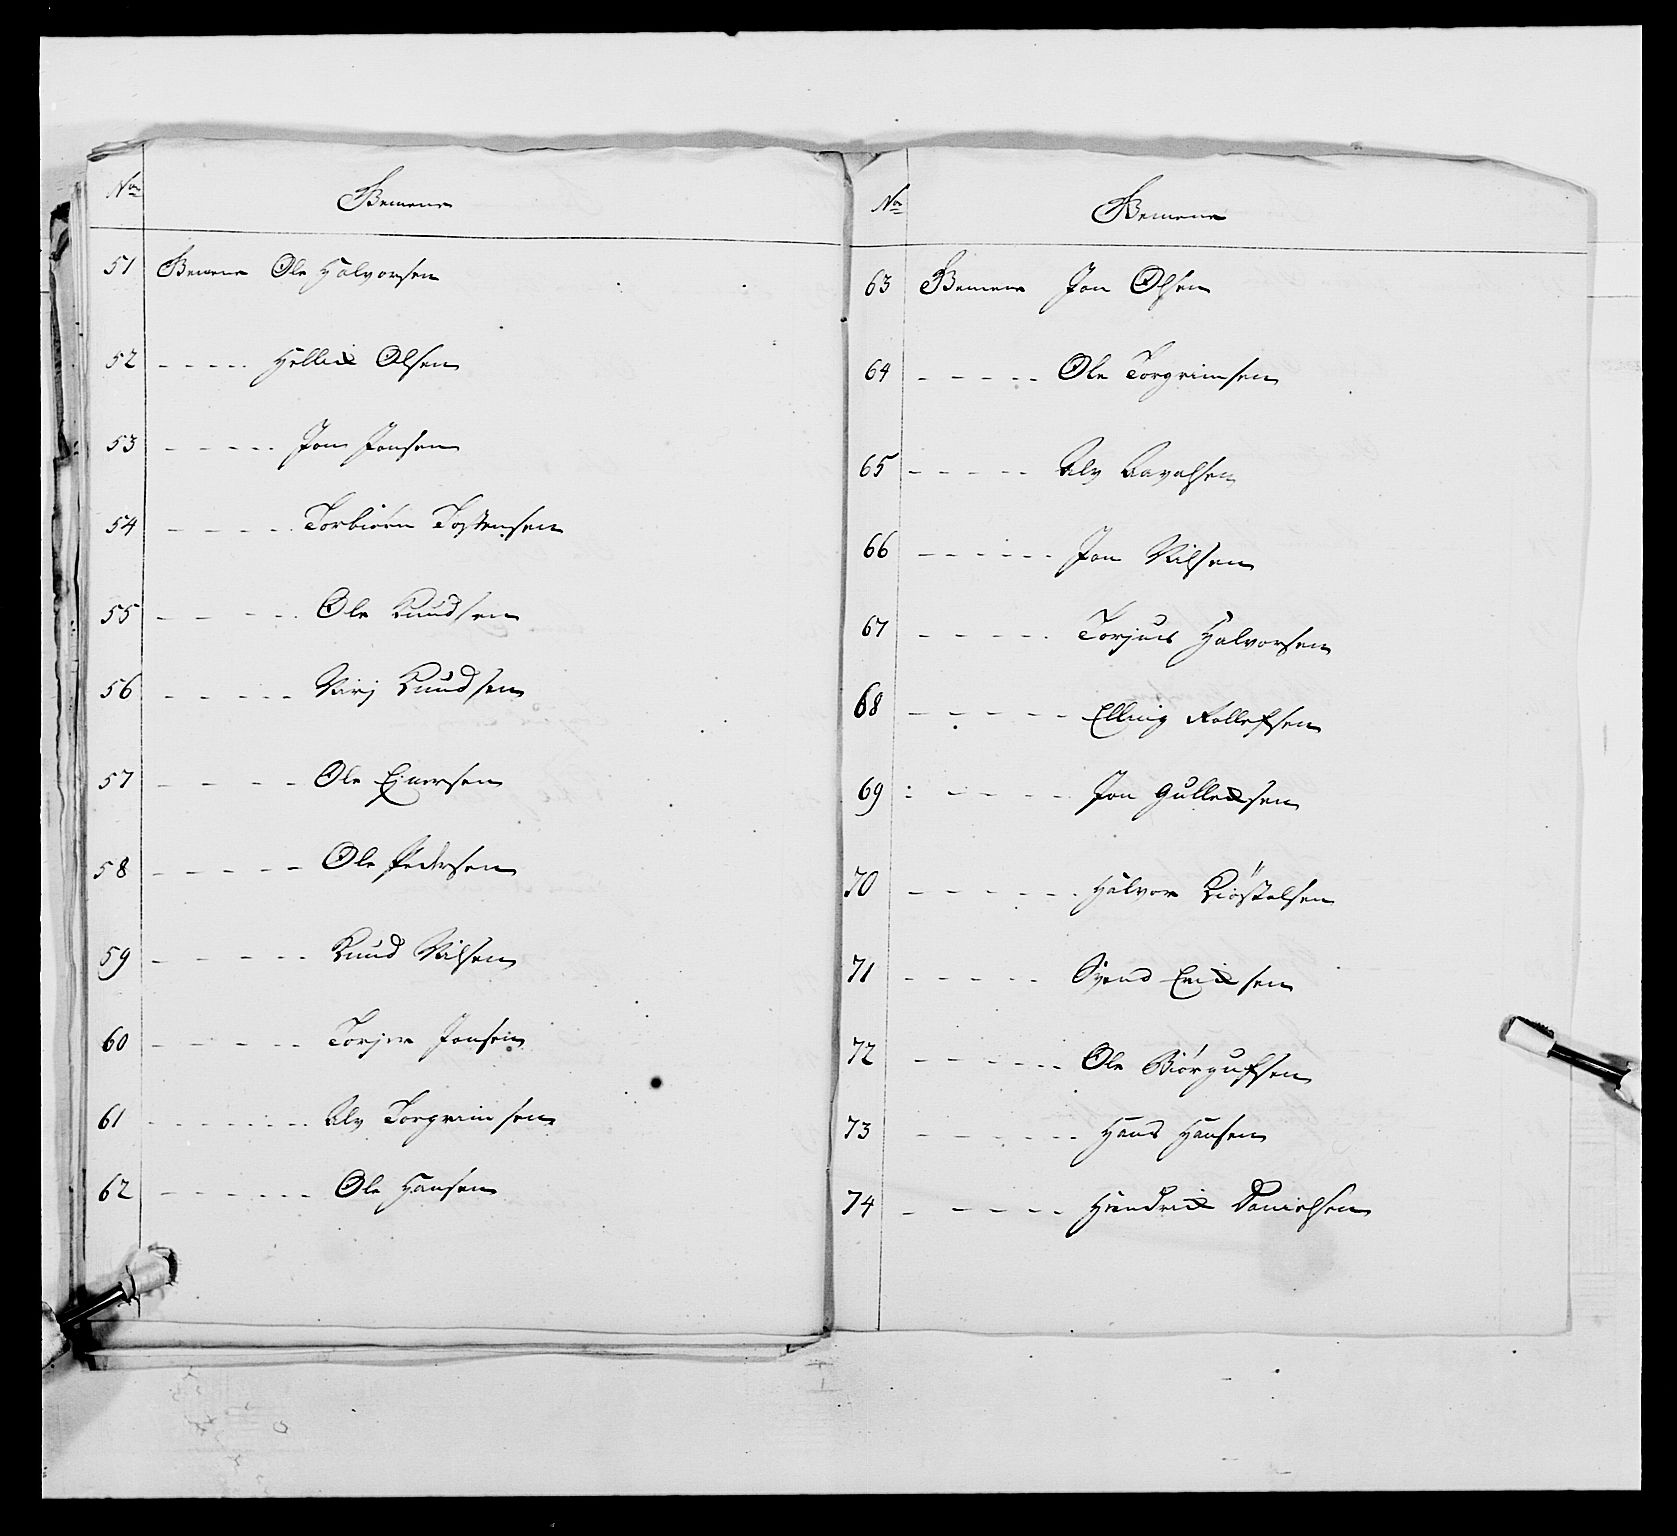 No
Bemene
51 Bemene Ole Halvorsen
52 - - - - - Hellik Olsen
53 - - - - - Jon Jonsen
54 - - - - - Torbiörn Tostensen
55 - - - - - Ole Knudsen
56 - - - - - Knudsen
57 - - - - - Ole Ejnersen
58 - - - - - Ole Pedersen
59 - - - - - Knud Nilsen
60 - - - - - Torjer Jonsen
61 - - - - - - - Alv Torgrimsen
62 - - - - - - Ole Hansen
No
Bemene
63 Bemene Jon Olsen
64 - - - - - Ole Torgrimsen
65 - - - - - Alv Aavelsen
66 - - - - - - Jon Nilsen
67 - - - - - Torjus Halvorsen
68 - - - - - Elling Rollefsen
69 : - - - - Jon Gulleksen
70 - - - - - - Halvor Kiöstelsen
71 - - - - - Svend Eriksen
72 - - - - - - Ole Biörgufsen
73 - - - - - - Hans Hansen
74 - - - - - Hendrik Danielsen